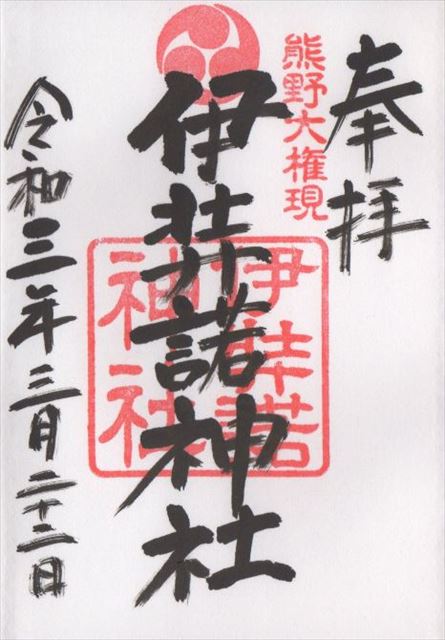 奉拝
熊野大権現
伊弉諾神社
伊弉諾
神社
令和三年三月二十二日